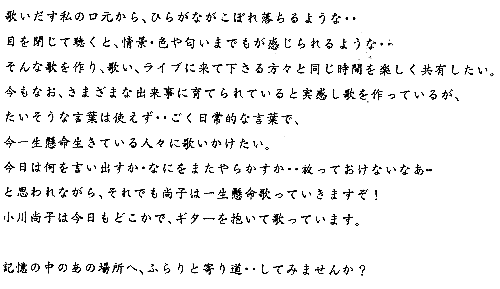 歌いだす私の口元から、ひらがながこぼれ落ちるような・・
目を閉じて聴くと、情景・色や匂いまでもが感じられるような・・
そんな歌を作り、歌い、ライブに来て下さる方々と同じ時間を楽しく共有したい。
今もなお、さまざまな出来事に育てられていると実感し歌を作っているが、
たいそうな言葉は使えず・・ごく日常的な言葉で、
今一生懸命生きている人々に歌いかけたい。
今日は何を言い出すか・なにをまたやらかすか・・放っておけないなあ~
と思われながら、それでも尚子は一生懸命歌っていきますぞ！
小川尚子は今日もどこかで、ギターを抱いて歌っています。
記憶の中のあの場所へ、ふらりと寄り道・・してみませんか？